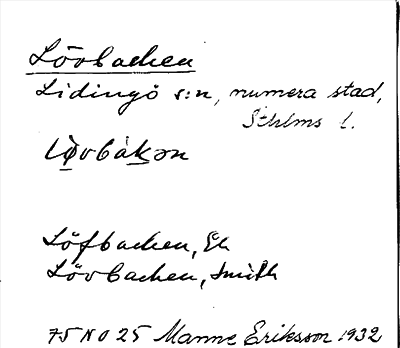 Lövbacken
Lidingö s:n, numera stad,
Sthlms l.
lø̀vbàkən
Löfbacken, Ek
Lövbacken, Smith
75 N O 25 Manne Eriksson 1932